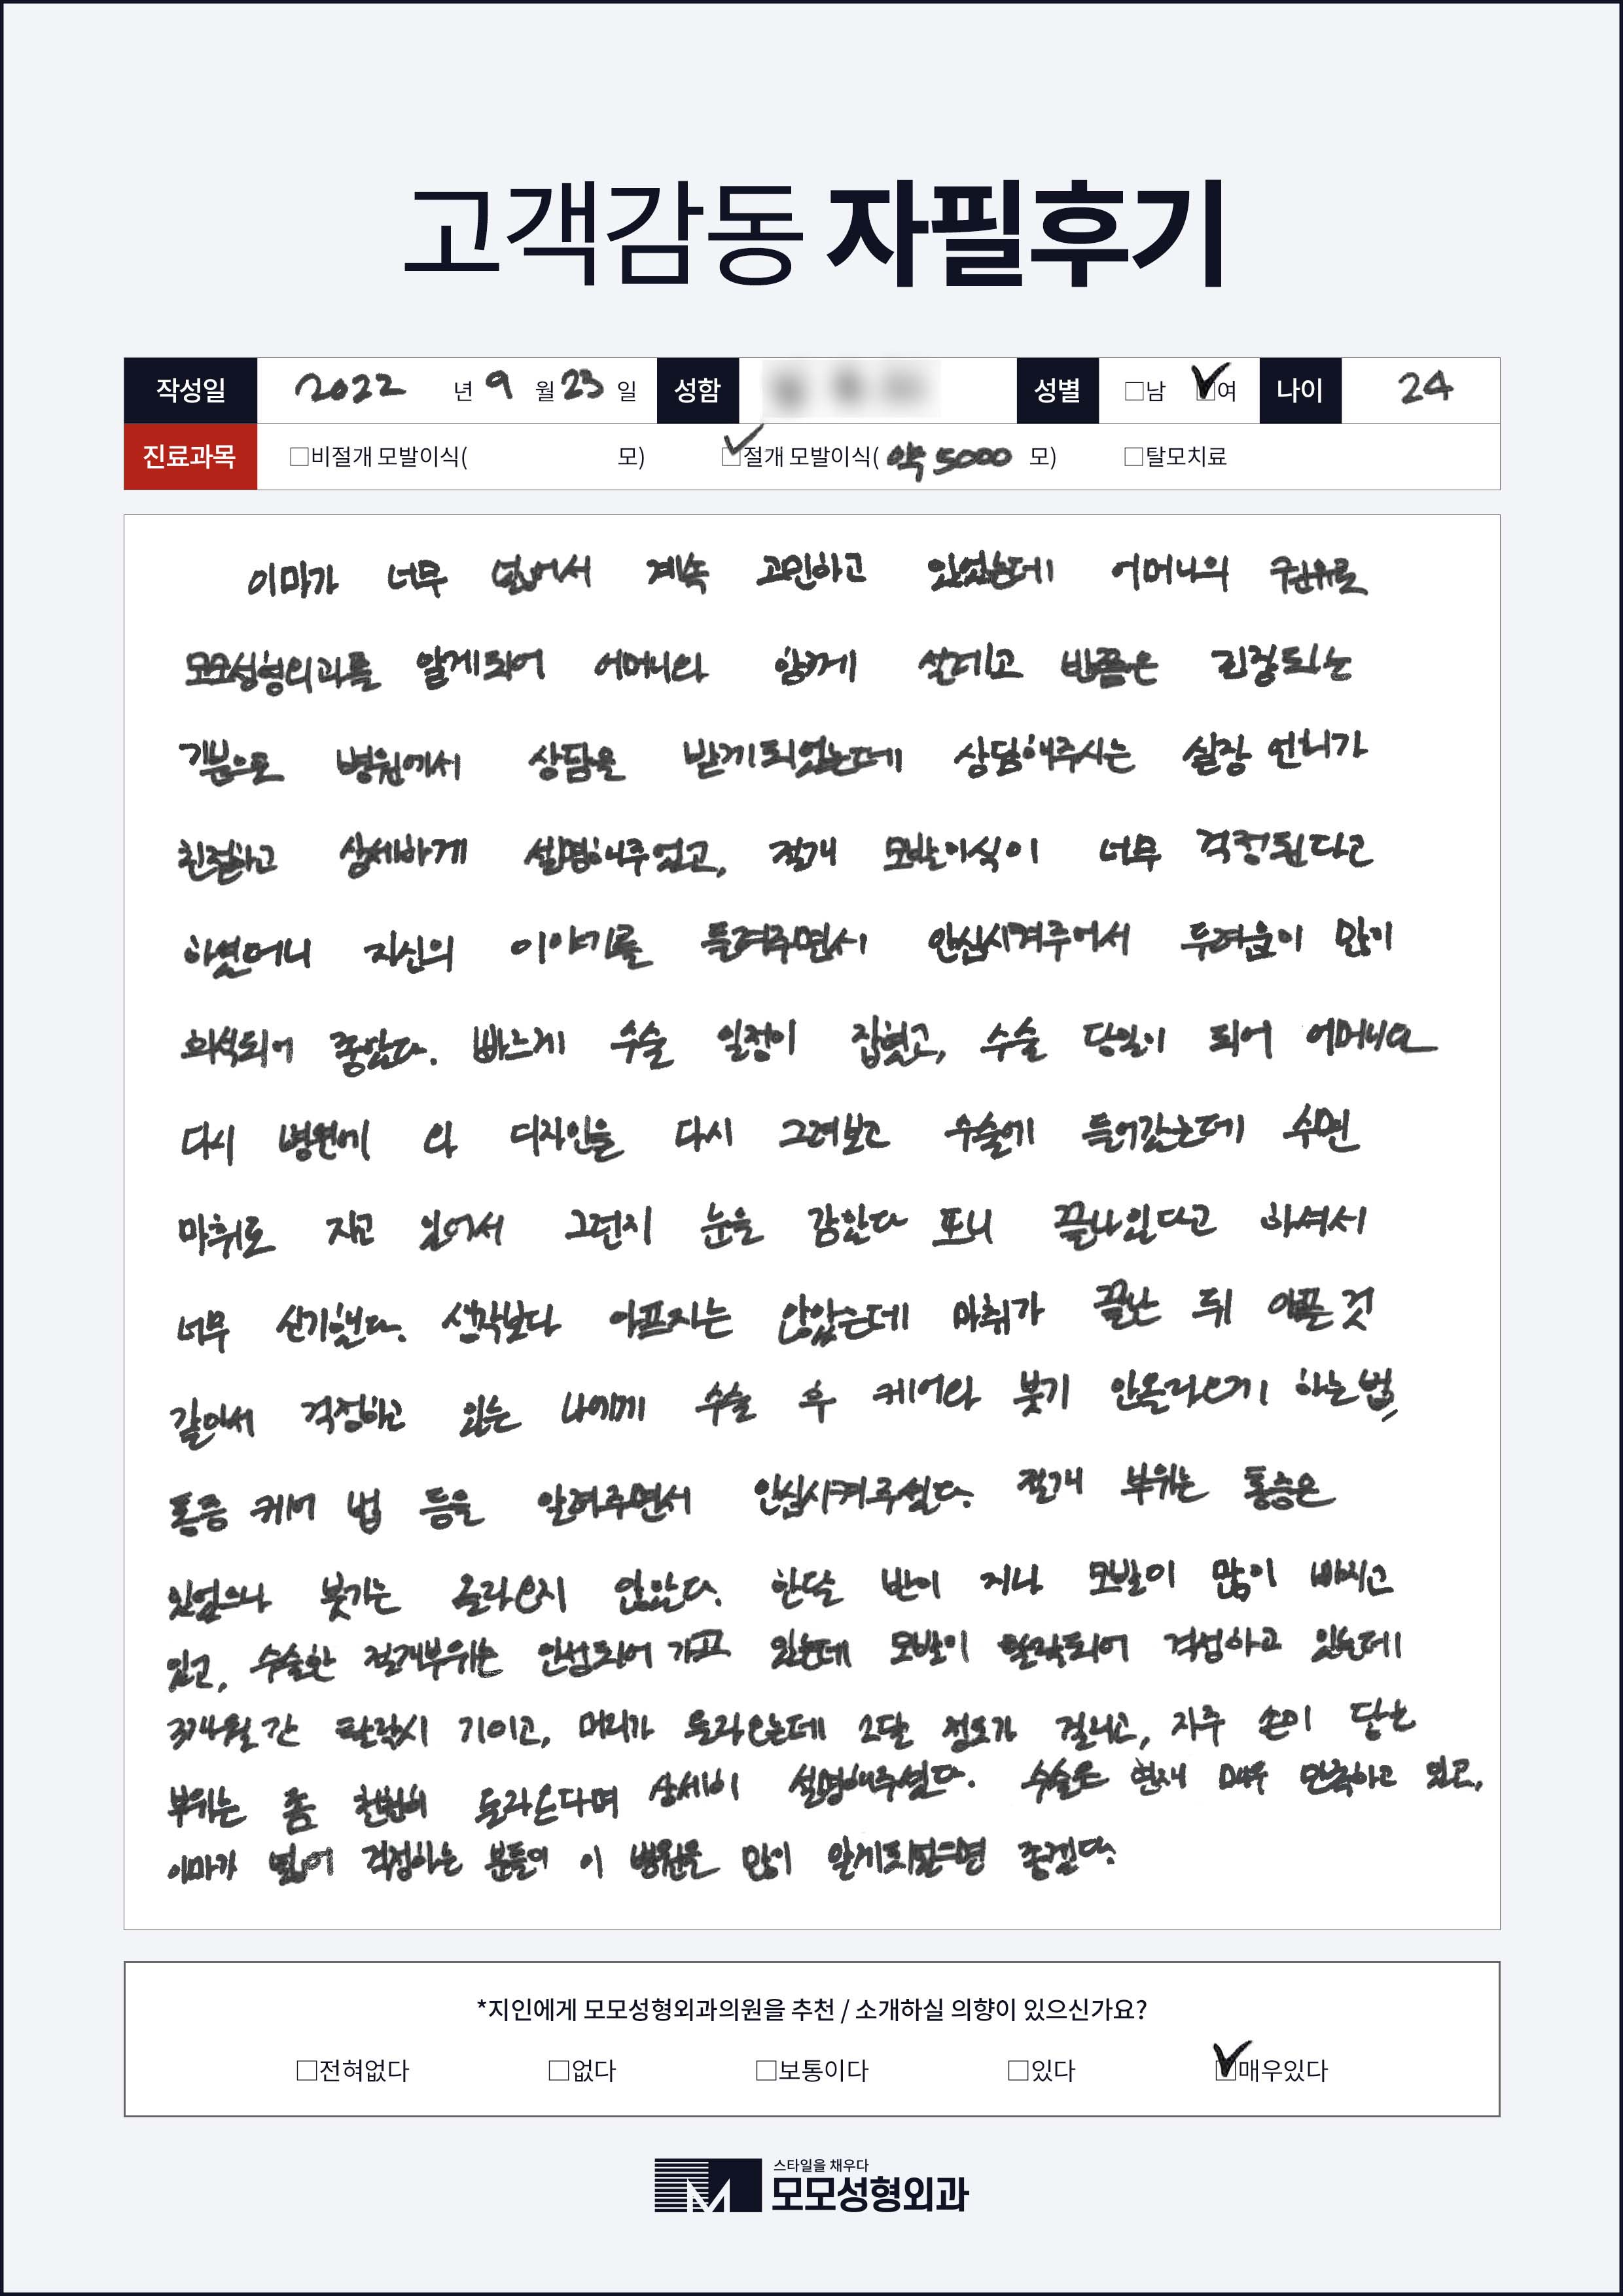 고객감동 자필후기
작성일 2022 년 9 월 23 일 성함 성별 □남 ☑여 나이 24
진료과목 □비절개 모발이식( 모) ☑절개 모발이식( 약 5000 모) □탈모치료
이마가 너무 넓어서 계속 고민하고 있었는데 어머니의 권유로
모모성형외과를 알게되어 어머니와 함께 설레고 반쯤은 긴장되는
기분으로 병원에서 상담을 받게되었는데 상담해주시는 실장 언니가
친절하고 상세하게 설명해주었고, 절개 모발이식이 너무 걱정된다고
하였더니 자신의 이야기를 들려주면서 안심시켜주어서 두려움이 많이
희석되어 좋았다. 빠르게 수술 일정이 잡혔고, 수술 당일이 되어 어머니와
다시 병원에 와 디자인을 다시 그려보고 수술에 들어갔는데 수면
마취로 자고 있어서 그런지 눈을 감았다 뜨니 끝나있다고 하셔서
너무 신기했다. 생각보다 아프지는 않았는데 마취가 끝난 뒤 아픈 것
같아서 걱정하고 있는 나에게 수술 후 케어와 붓기 안올라오게 하는 법,
통증 케어 법 등을 알려주면서 안심시켜주셨다. 절개 부위는 통증은
있었으나 붓기는 올라오지 않았다. 한달 반이 지나 모발이 많이 빠지고
있고, 수술한 절개부위는 안정되어 가고 있는데 모발이 탈락되어 걱정하고 있는데
3개월간 탈락시 기이고, 머리가 돌아오는데 2달 정도가 걸리고, 자주 손이 닿는
부위는 좀 천천히 돌아온다며 상세히 설명해주셨다. 수술은 현재 매우 만족하고 있고,
이마가 넓어 걱정하는 분들이 이 병원을 많이 알게되었으면 좋겠다.
*지인에게 모모성형외과의원을 추천 / 소개하실 의향이 있으신가요?
□전혀없다 □없다 □보통이다 □있다 ☑매우있다
스타일을 채우다
모모성형외과